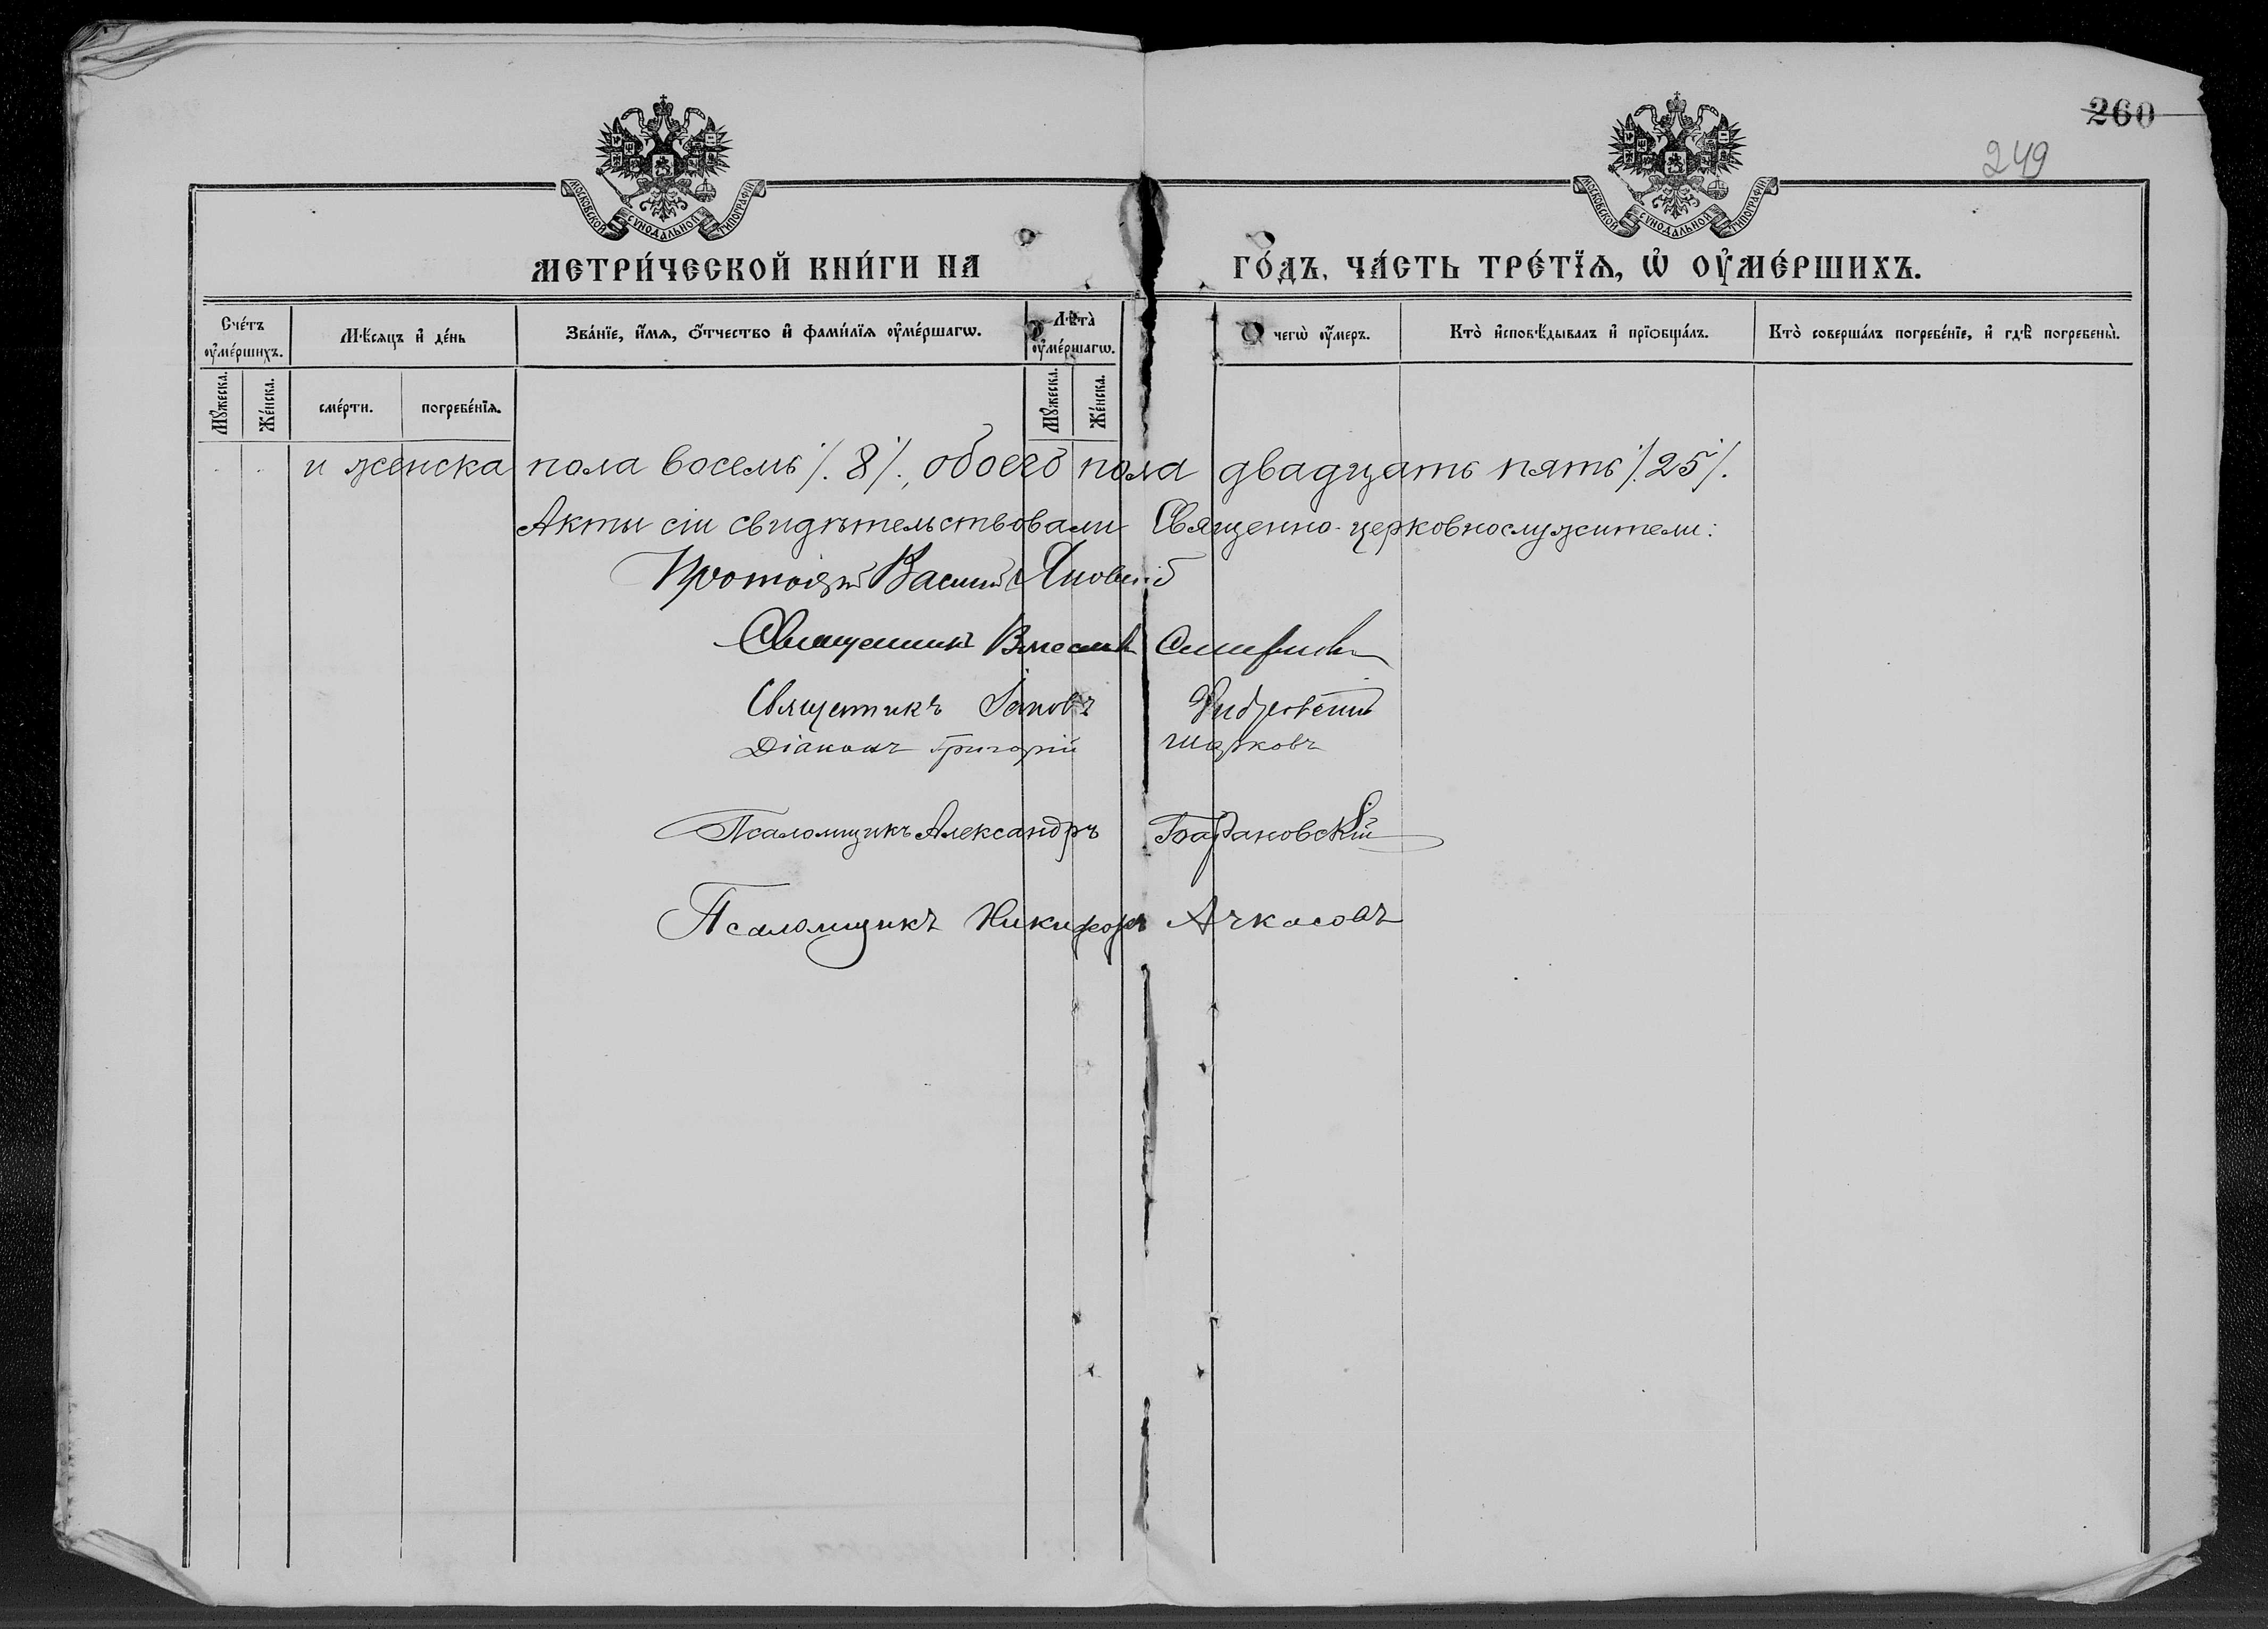 260
249
МОСКОВСКОЙ СѴНОДАЛЬНОЙ ТИПОГРАФІИ
МОСКОВСКОЙ СѴНОДАЛЬНОЙ ТИПОГРАФІИ
МЕТРИ́ЧЕСКОЙ КНИ́ГИ НА ГО́ДЪ, ЧА́СТЬ ТРЕ́ТЇѦ, Ѡ҆ ОУ҆МЕ́РШИХЪ.
Сче́тъ оу҆ме́ршихъ.
Мѣ́сяцъ и҆ де́нь
Зва́нїе, и҆́мя, ѻ҆́тчество и҆ фами́лїя оу҆ме́ршагѡ.
Лѣта̀ оу҆ме́ршагѡ.
Ѿ чегѡ̀ оу҆́меръ.
Кто̀ и҆сповѣ́дывалъ и҆ прїѻбща́лъ.
Кто̀ соверша́лъ погребе́нїе, и҆ гдѣ̀ погребены̀.
Мꙋ́жеска.
Же́нска.
сме́рти.
погребе́нїя.
Мꙋ́жеска.
Же́нска.
и женска пола восемь /. 8 /., обоего пола двадцать пять /. 25 /.
Акты сіи свидѣтельствовали Священно-церковнослужители:
Протоіерей Василій
Священникъ
Священникъ Іаковъ
Діаконъ Григорій
Псаломщикъ Александръ Барановскій
Псаломщикъ Никифоръ Ачкасовъ